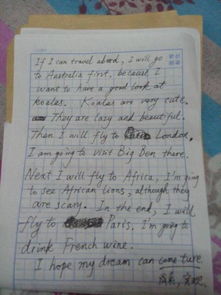 If I can travel abord, I will go
to Australia first, because I
want to have a good look at
koalas. Koalas are very cute.
They are lazy and beautiful.
Then I will fly to London.
I am going to visit Big Ben there.
Next I will fly to Africa, I'm going
to see African lions, although they
are scary. In the end, I will
fly to Paris, I'm going to
drink French wine.
I hope my dream can come ture.